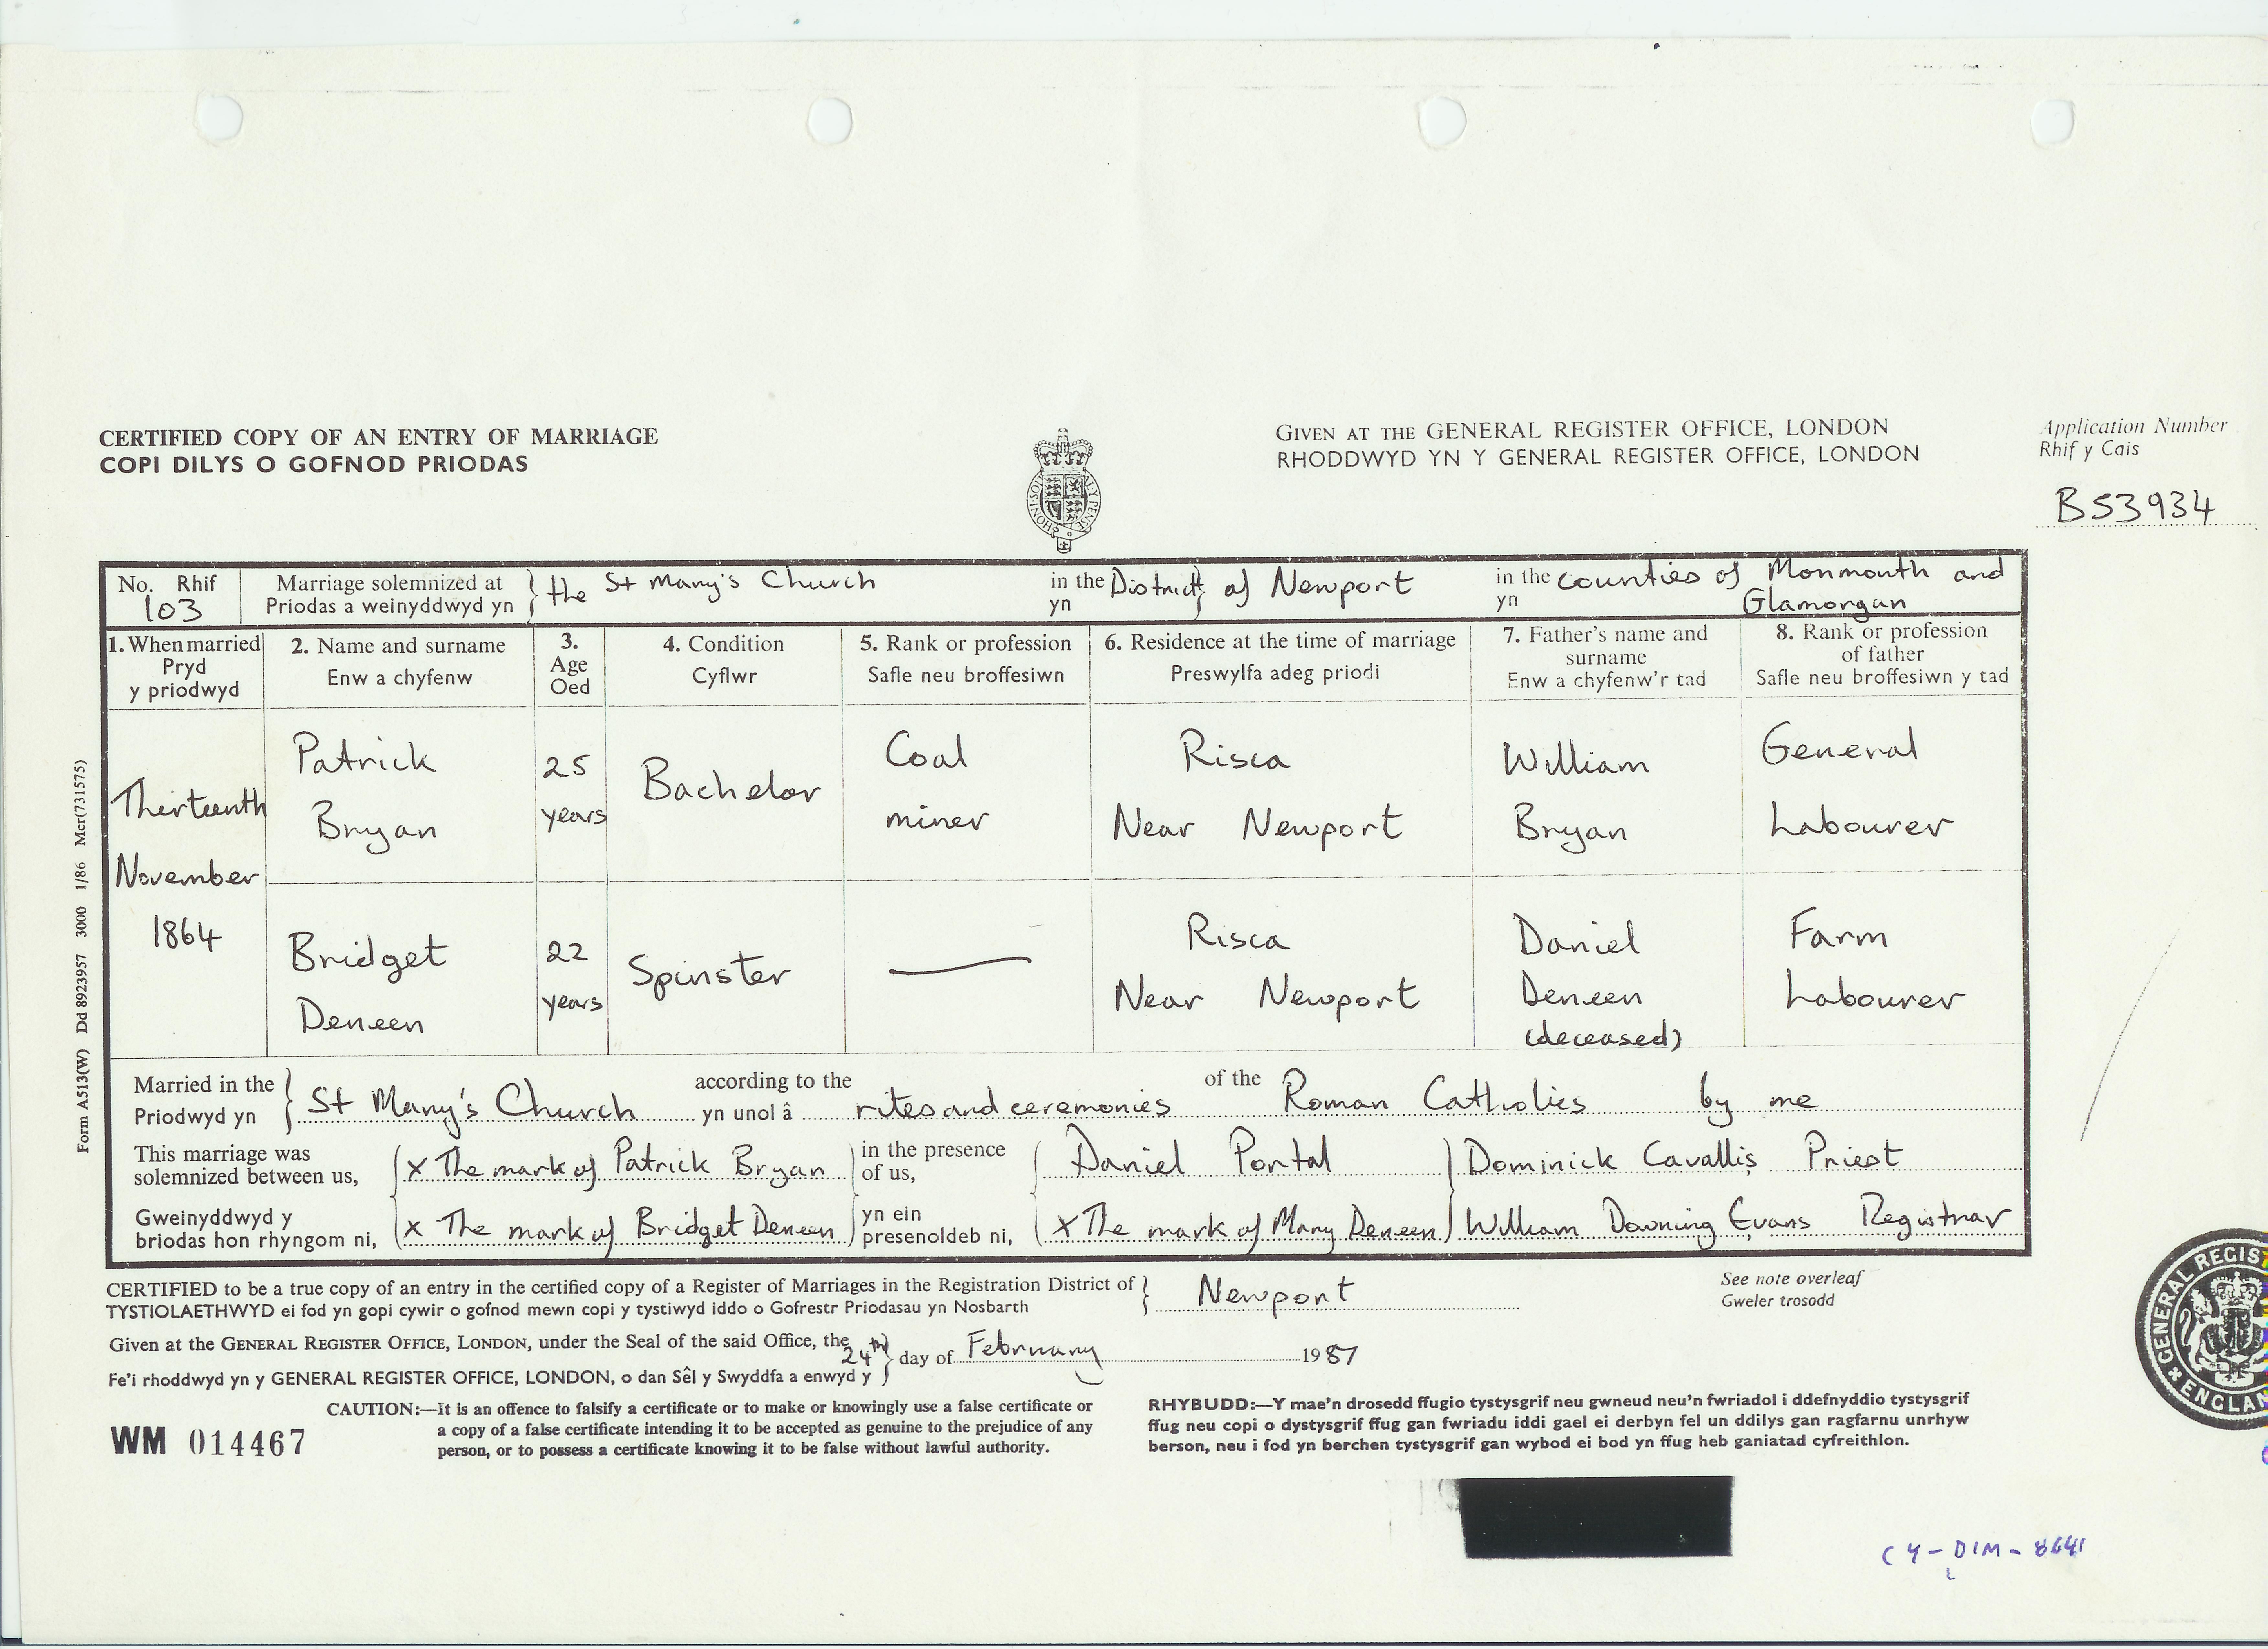 CERTIFIED COPY OF AN ENTRY OF MARRIAGE
COPI DILYS O GOFNOD PRIODAS
GIVEN AT THE GENERAL REGISTER OFFICE, LONDON
RHODDWYD YN Y GENERAL REGISTER OFFICE, LONDON
Application Number
Rhif y Cais
B53934
No. Rhif
103
Marriage solemnized at
Priodas a weinyddwyd yn
the St Mary's Church
in the
yn
District of Newport
in the
yn
counties of Monmouth and
Glamorgan
1. When married
Pryd
y priodwyd
2. Name and surname
Enw a chyfenw
3.
Age
Oed
4. Condition
Cyflwr
5. Rank or profession
Safle neu broffesiwn
6. Residence at the time of marriage
Preswylfa adeg priodi
7. Father's name and
surname
Enw a chyfenw'r tad
8. Rank or profession
of father
Safle neu broffesiwn y tad
Thirteenth
November
1864
Patrick
Bryan
25
years
Bachelor
Coal
miner
Risca
Near Newport
William
Bryan
General
Labourer
Bridget
Deneen
22
years
Spinster
Risca
Near Newport
Daniel
Deneen
(deceased)
Farm
Labourer
Married in the
Priodwyd yn
St Mary's Church
according to the
yn unol â
rites and ceremonies
of the
Roman Catholics by me
This marriage was
solemnized between us,
Gweinyddwyd y
briodas hon rhyngom ni,
x The mark of Patrick Bryan
x The mark of Bridget Deneen
in the presence
of us,
yn ein
presenoldeb ni,
Daniel Portal
x The mark of Mary Deneen
Dominick Cavallis Priest
William Downing Evans Registrar
CERTIFIED to be a true copy of an entry in the certified copy of a Register of Marriages in the Registration District of
TYSTIOLAETHWYD ei fod yn gopi cywir o gofnod mewn copi y tystiwyd iddo o Gofrestr Priodasau yn Nosbarth
Newport
See note overleaf
Gweler trosodd
Given at the GENERAL REGISTER OFFICE, LONDON, under the Seal of the said Office, the
24th day of February 1987
Fe'i rhoddwyd yn y GENERAL REGISTER OFFICE, LONDON, o dan Sêl y Swyddfa a enwyd y
WM 014467
CAUTION:—It is an offence to falsify a certificate or to make or knowingly use a false certificate or
a copy of a false certificate intending it to be accepted as genuine to the prejudice of any
person, or to possess a certificate knowing it to be false without lawful authority.
RHYBUDD:—Y mae'n drosedd ffugio tystysgrif neu gwneud neu'n fwriadol i ddefnyddio tystysgrif
ffug neu copi o dystysgrif ffug gan fwriadu iddi gael ei derbyn fel un ddilys gan ragfarnu unrhyw
berson, neu i fod yn berchen tystysgrif gan wybod ei bod yn ffug heb ganiatad cyfreithlon.
Form A513(W) Dd 8923957 3000 1/86 Mcr(731575)
GENERAL REGIS
ENGLAN